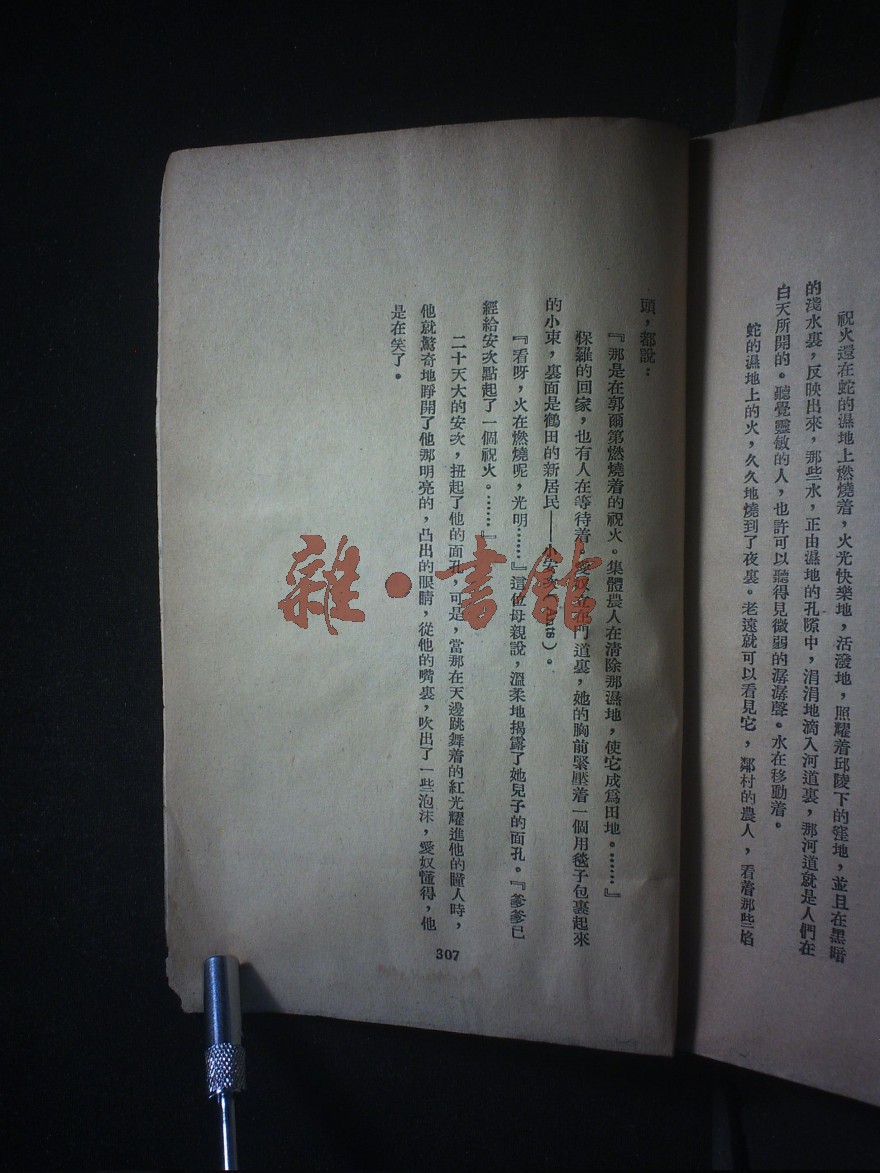 祝火還在蛇的濕地上燃燒着，火光快樂地，活潑地，照耀着邱陵下的窪地，並且在黑暗
的淺水裏，反映出來，那些水，正由濕地的孔隙中，涓涓地滴入河道裏，那河道就是人們在
白天所開的。聽覺靈敏的人，也許可以聽得見微弱的潺潺聲。水在移動着。
蛇的濕地上的火，久久地燒到了夜裏。老遠就可以看見它，鄰村的農人，看着那些焰
頭，都說：
『那是在郭爾第燃燒着的祝火。集體農人在清除那濕地，使它成爲田地。……』
保羅的回家，也有人在等待着，愛奴立在門道裏，她的胸前緊壓着一個用毯子包裹起來
的小東，裏面是鶴田的新居民——小安次（Ants）。
『看呀，火在燃燒呢，光明……』這位母親說，溫柔地揭露了她兒子的面孔。『爹爹已
經給安次點起了一個祝火。……』
二十天大的安次，扭起了他的面孔，可是，當那在天邊跳舞着的紅光耀進他的瞳人時，
他就驚奇地睜開了他那明亮的，凸出的眼睛，從他的嘴裏，吹出了一些泡沫，愛奴懂得，他
是在笑了。
307
雜·書館